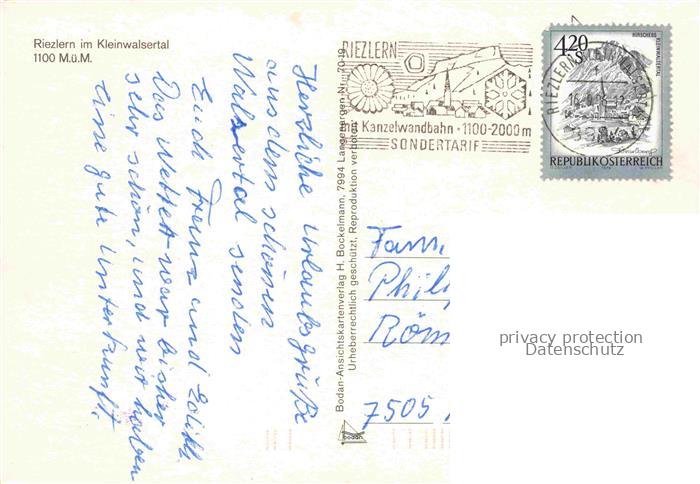 Riezlern im Kleinwalsertal
1100 M.ü.M.
Herzliche Urlaubsgrüße
aus dem schönen
Walsertal senden
Euch Franz und Edith
Das Wetter war bisher
sehr schön, und wir haben
eine gute Unterkunft.
Bodan-Ansichtskartenverlag H. Bockelmann, 7994 Langenargen Nr. 70-19
Urheberrechtlich geschützt, Reproduktion verboten
bodan
RIEZLERN
mit Kanzelwandbahn · 1100-2000 m
SONDERTARIF
RIEZLERN
4.20
S
HIRSCHEGG
KLEINWALSERTAL
REPUBLIK ÖSTERREICH
Fam.
Phil
Röm
7505
privacy protection
Datenschutz